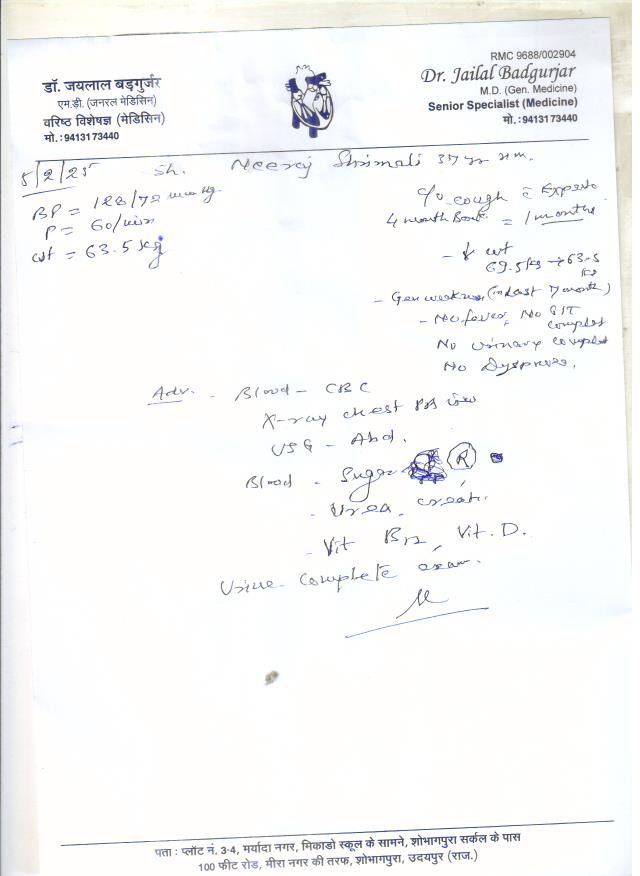 RMC 9688/002904
डॉ. जयलाल बड़गुर्जर
एम.डी. (जनरल मेडिसिन)
वरिष्ठ विशेषज्ञ (मेडिसिन)
मो. : 9413173440
Dr. Jailal Badgurjar
M.D. (Gen. Medicine)
Senior Specialist (Medicine)
मो. : 9413173440
5/2/25 Sh. Neeraj Shrimali 37 yr
BP = 128/72 mmHg
P = 60/min
wt = 63.5 kg
c/o cough c Expecto
4 month Back = 1 months
- ↓ wt
69.5 kg → 63.5 kg
- Gen weakness (in last 7 month)
- No fever, No GIT complet
No urinary complet
No Dyspnoea,
Adv. - Blood - CBC
X-ray chest PA view
USG - Abd.
Blood - Sugar (R)
- Urea, creat.
- Vit B12, Vit. D.
Urine - Complete exam.
पता : प्लॉट नं. 3-4, मर्यादा नगर, मिकाडो स्कूल के सामने, शोभागपुरा सर्कल के पास
100 फीट रोड, मीरा नगर की तरफ, शोभागपुरा, उदयपुर (राज.)